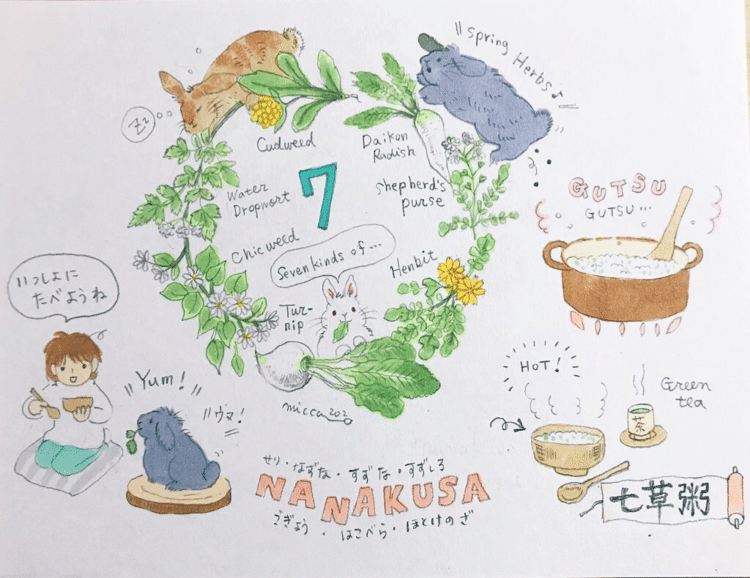 Spring Herbs♪
Zz
Cudweed
Daikon
Radish
Water
Dropwort
7
Shepherd's
purse
GUTSU
GUTSU...
Chicweed
Seven kinds of...
Henbit
いっしょに
たべようね
Tur-
nip
Yum!
ウマ!
micca2020
HoT!
Green
tea
茶
せり・なずな・すずな・すずしろ
NANAKUSA
ごぎょう・はこべら・ほとけのざ
七草粥